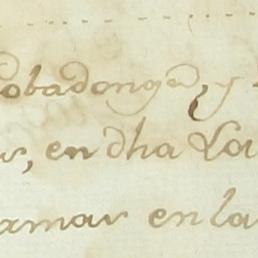 obadonga, y
en dha La
amas en la